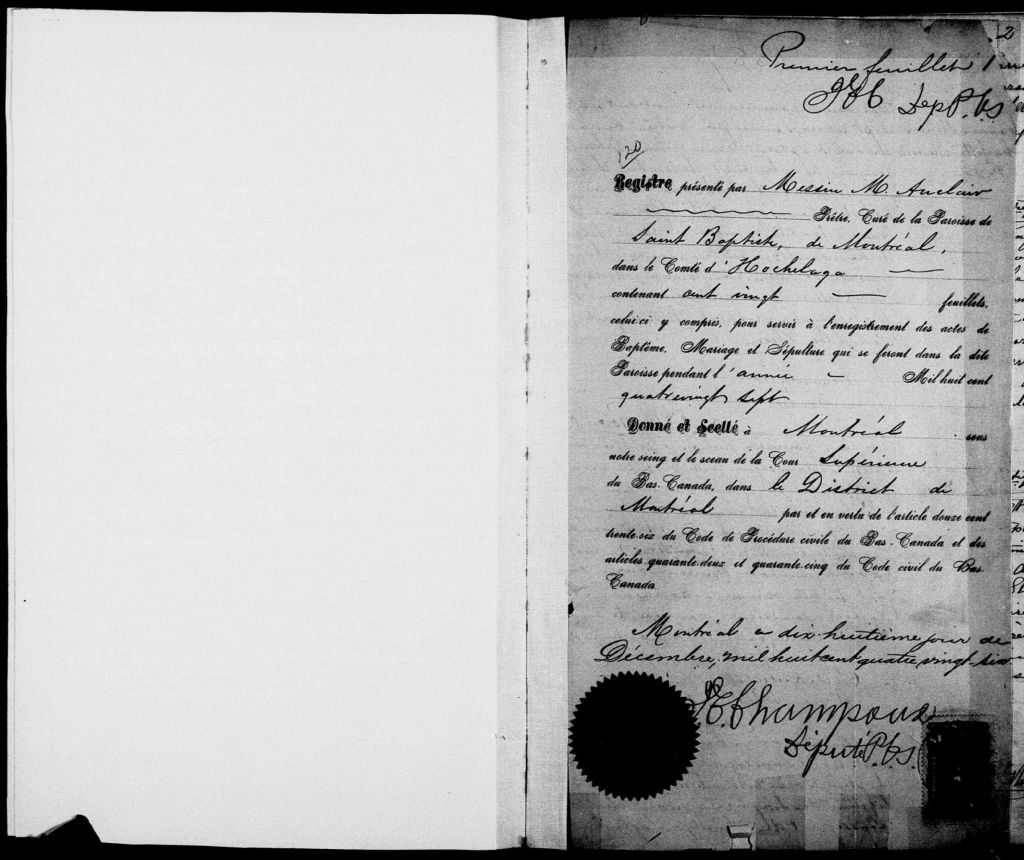 2
Premier feuillet
Dep P. Cs
120
Registre présenté par Messire M. Auclair
Prêtre, Curé de la Paroisse de
Saint Baptiste, de Montréal,
dans le Comté d'Hochelaga
contenant cent vingt feuillets,
celui-ci y compris, pour servir à l'enregistrement des actes de
Baptême, Mariage et Sépulture qui se feront dans la dite
Paroisse pendant l'année Mil huit cent
quatrevingt sept
Donné et Scellé à Montréal sous
notre seing et le sceau de la Cour Supérieure
du Bas-Canada, dans le District de
Montréal par et en vertu de l'article douze cent
trente-six du Code de Procédure civile du Bas-Canada et des
articles quarante-deux et quarante-cinq du Code civil du Bas-
Canada
Montréal ce dix huitième jour de
Décembre, mil huit cent quatre vingt-six
Champoux
Député P. Cs.